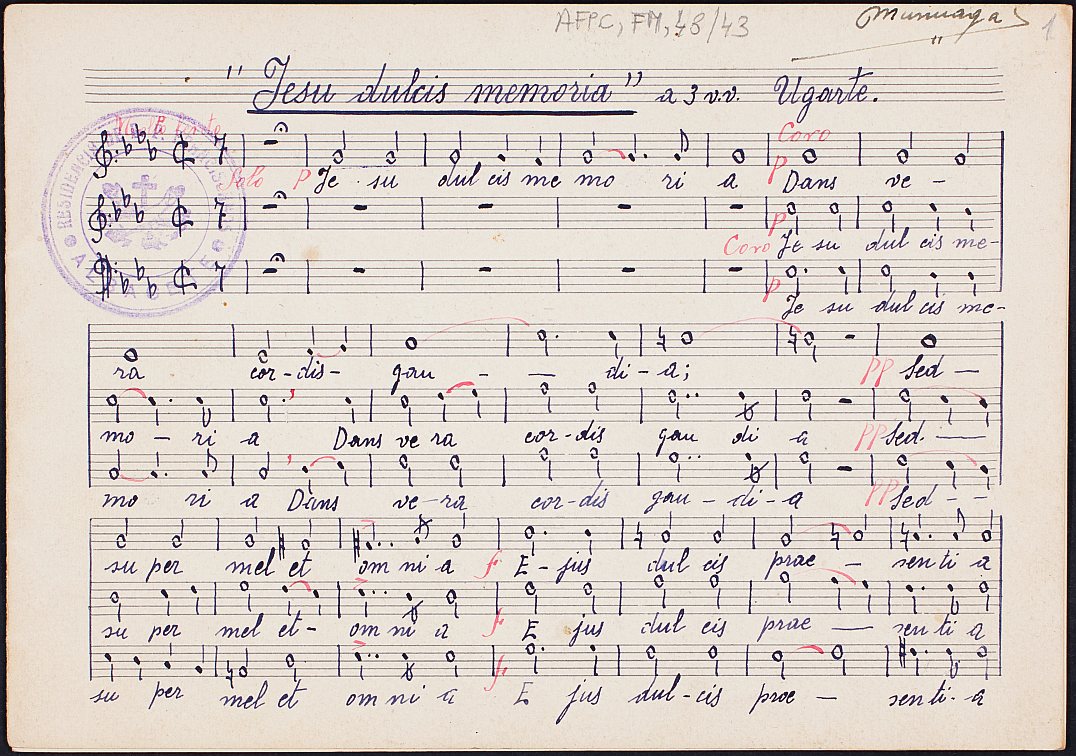 AFPC, FM, 48/43
1
"Jesu dulcis memoria" a 3 v.v. Ugarte.
Coro
Solo p Je su dul cis me mo ri a p Dans ve -
p
Coro Je su dul cis me-
p
Je su dul cis me-
ra cor-dis- gau - - di-a; pp Sed -
mo - ri - a Dans ve ra cor-dis gau di a pp Sed. -
mo ri a Dans ve-ra cor-dis gau-di-a pp Sed - -
su per mel et om ni a f E-jus dul cis prae - sen ti a
su per mel et- om ni a f E jus dul cis prae - sen ti a
su per mel et om ni a f E jus dul-cis prae - sen ti-a